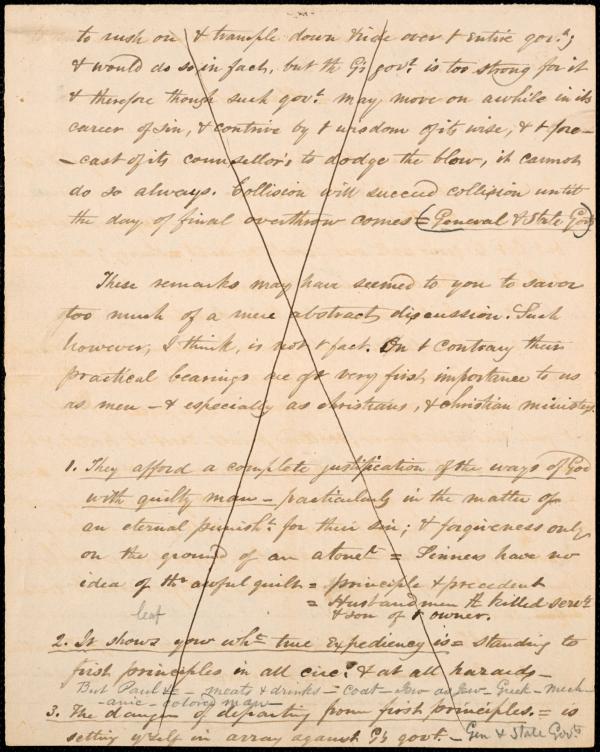 to rush on & trample down & ride over t entire gov.t;
& would do so in fact, but th G's gov.t is too strong for it
& therefore though such gov.t may move on awhile in its
career of sin, & contrive by t wisdom of its wise, & t fore-
-cast of its counsellor's to dodge the blow, it cannot
do so always. Collision will succeed collision until
the day of final overthrow comes = (General & State Gov)
These remarks may have seemed to you to savor
too much of a mere abstract discussion. Such
however, I think, is not t fact. On t contrary their
practical bearings are of t very first importance to us
as men - & especially as christians, & christian ministers.
1. They afford a complete justification of the ways of God
with guilty man - particularly in the matter of
an eternal punish.t for their sin; & forgiveness only
on the ground of an atone.t = Sinners have no
idea of thr awful guilt = principle & precedent
= Husbandmen tt killed serv.ts
leaf & son of t owner.
2. It shows you wht true Expediency is = standing to
first principles in all circ.s & at all hazards -
But Paul &c - meats & drinks - coat - Jew as Jew - Greek - mech-
-anic - colored man -
3. The danger of departing from first principles. = is
setting y'self in array against G's gov.t - Gen & State Gov.ts